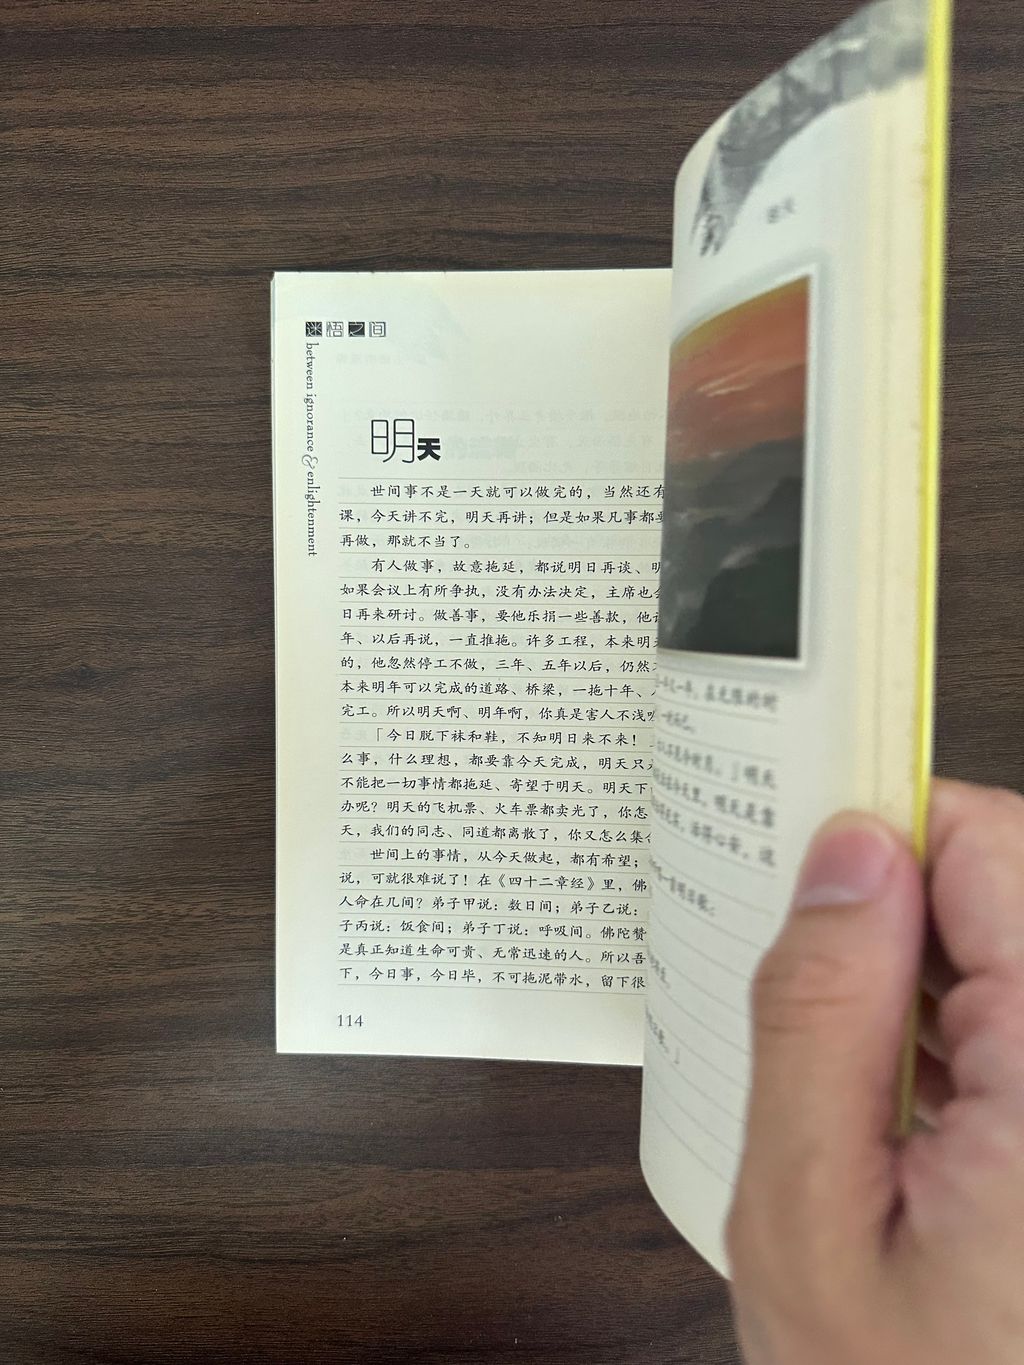 迷悟之间
between ignorance & enlightenment
明天
世间事不是一天就可以做完的，当然还有
课，今天讲不完，明天再讲；但是如果凡事都要
再做，那就不当了。
有人做事，故意拖延，都说明日再谈、明
如果会议上有所争执，没有办法决定，主席也会
日再来研讨。做善事，要他乐捐一些善款，他说
年、以后再说，一直推拖。许多工程，本来明天
的，他忽然停工不做，三年、五年以后，仍然
本来明年可以完成的道路、桥梁，一拖十年、
完工。所以明天啊、明年啊，你真是害人不浅
「今日脱下袜和鞋，不知明日来不来！
么事，什么理想，都要靠今天完成，明天只
不能把一切事情都拖延、寄望于明天。明天下
办呢？明天的飞机票、火车票都卖光了，你怎
天，我们的同志、同道都离散了，你又怎么集合
世间上的事情，从今天做起，都有希望；
说，可就很难说了！在《四十二章经》里，佛
人命在几间？弟子甲说：数日间；弟子乙说：
子丙说：饭食间；弟子丁说：呼吸间。佛陀赞
是真正知道生命可贵、无常迅速的人。所以吾
下，今日事，今日毕，不可拖泥带水，留下很
114
明天
年又一年，在无限的时
」明天
明天是靠
活得心安，这
一首明日歌：
」